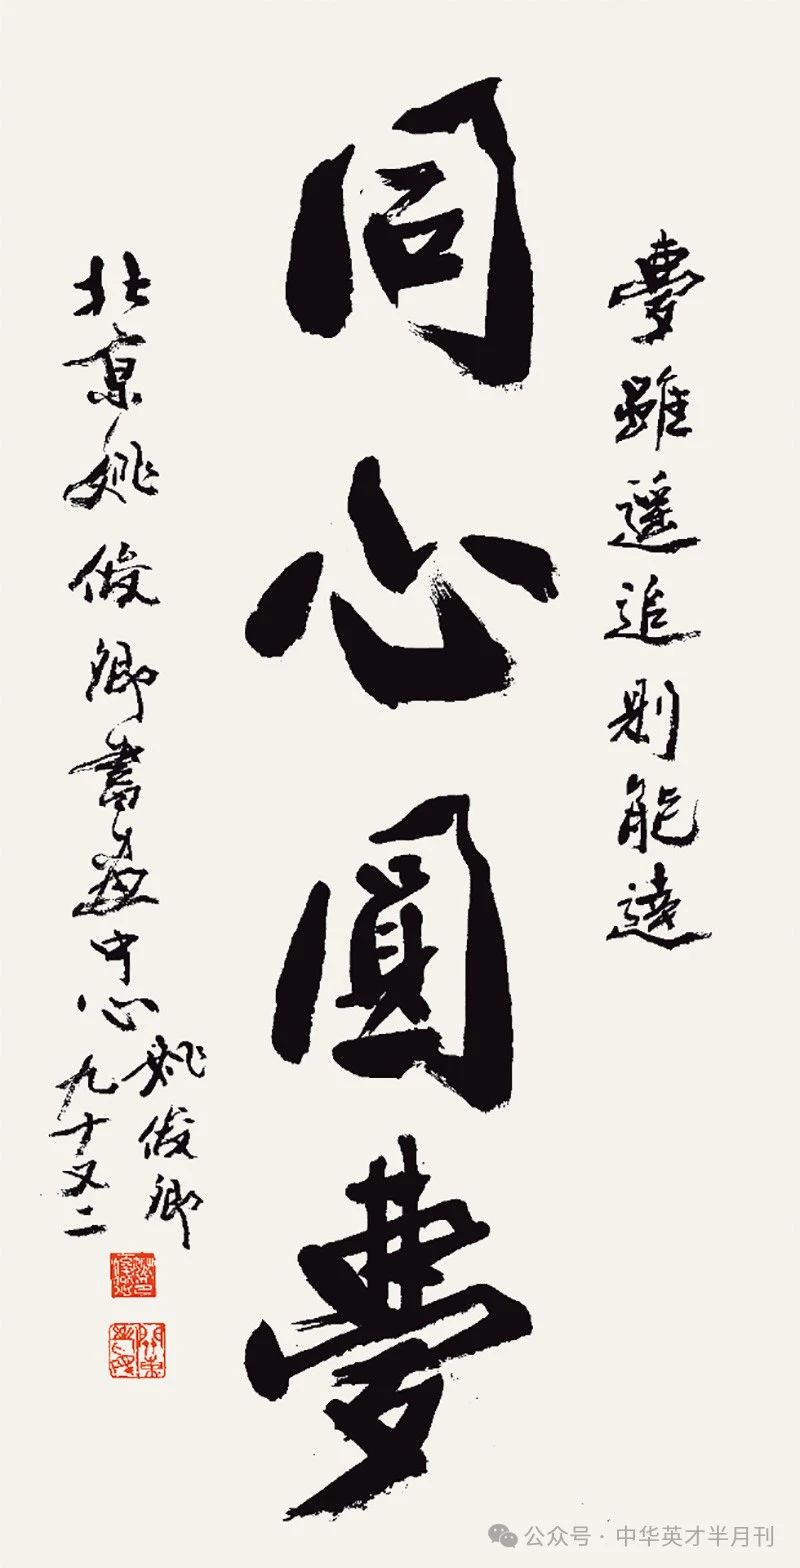 夢雖遥追則能達
同心圓夢
北京姚俊卿書畫中心
姚俊卿
九十又二
公众号 · 中华英才半月刊